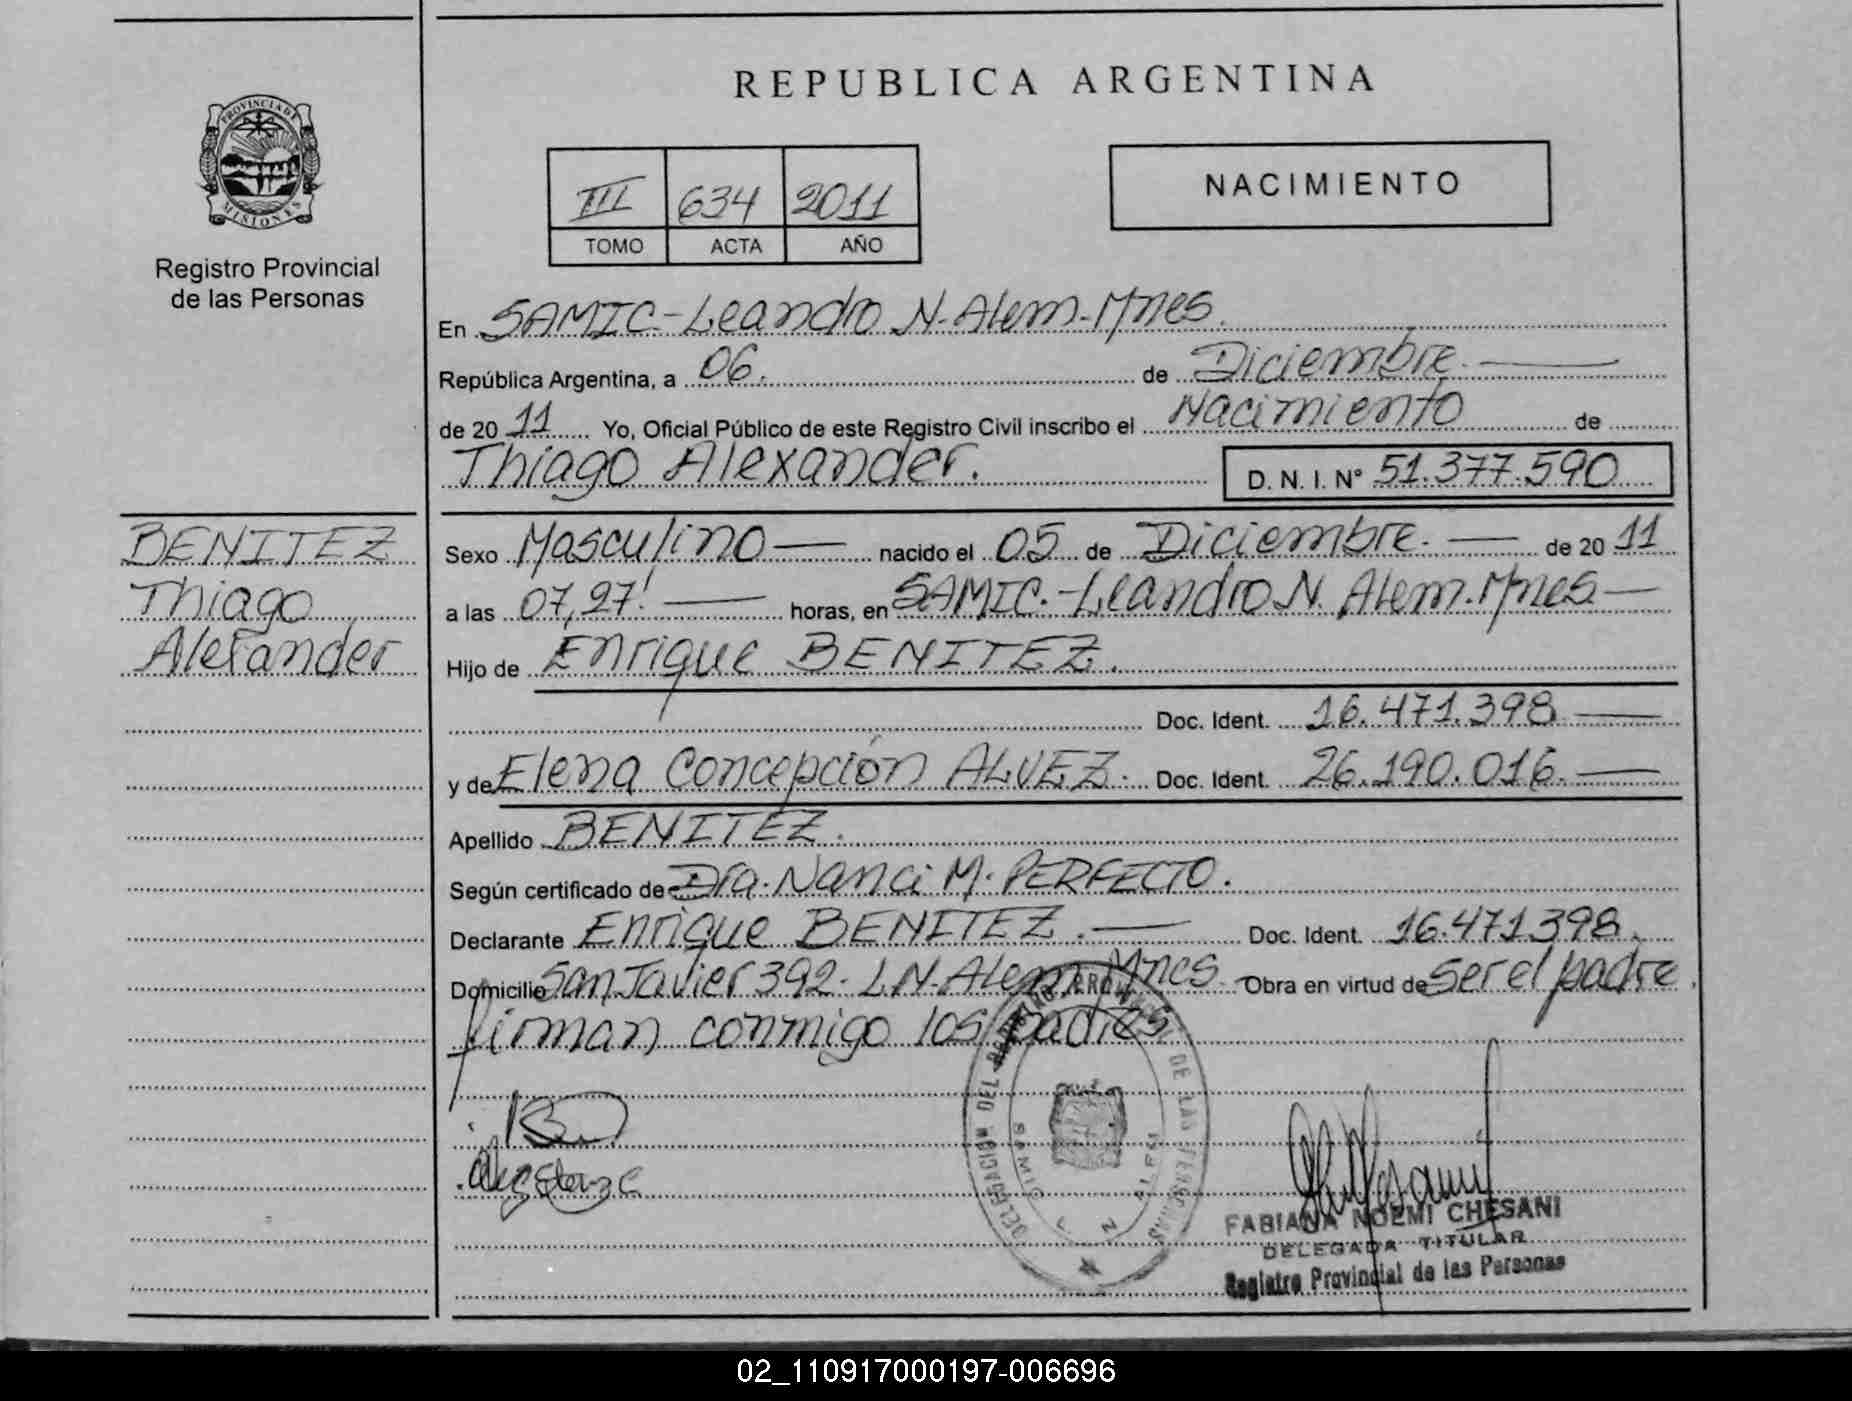 REPUBLICA ARGENTINA
PROVINCIA DE
MISIONES
Registro Provincial
de las Personas
III 634 2011
TOMO ACTA AÑO
NACIMIENTO
En SAMIC-Leandro N. Alem-Mnes.
República Argentina, a 06. de Diciembre
de 20 11 Yo, Oficial Público de este Registro Civil inscribo el Nacimiento de
Thiago Alexander. D. N. I. N° 51.377.590
BENITEZ
Thiago
Alexander
Sexo Masculino nacido el 05 de Diciembre. de 20 11
a las 07,27' horas, en SAMIC.-Leandro N. Alem.Mnes
Hijo de Enrique BENITEZ.
Doc. Ident. 16.471.398
y de Elena Concepción ALVEZ. Doc. Ident. 26.190.016.
Apellido BENITEZ.
Según certificado de Dra. Nanci M. PERFECTO.
Declarante Enrique BENITEZ. Doc. Ident. 16.471.398.
Domicilio San Javier 392. L.N. Alem Mnes. Obra en virtud de ser el padre.
firman conmigo los padres
DELEGACION DEL REGISTRO PROVINCIAL DE LAS PERSONAS
SAMIC L N ALEM
FABIANA NOEMI CHESANI
DELEGADA TITULAR
Registro Provincial de las Personas
02_110917000197-006696